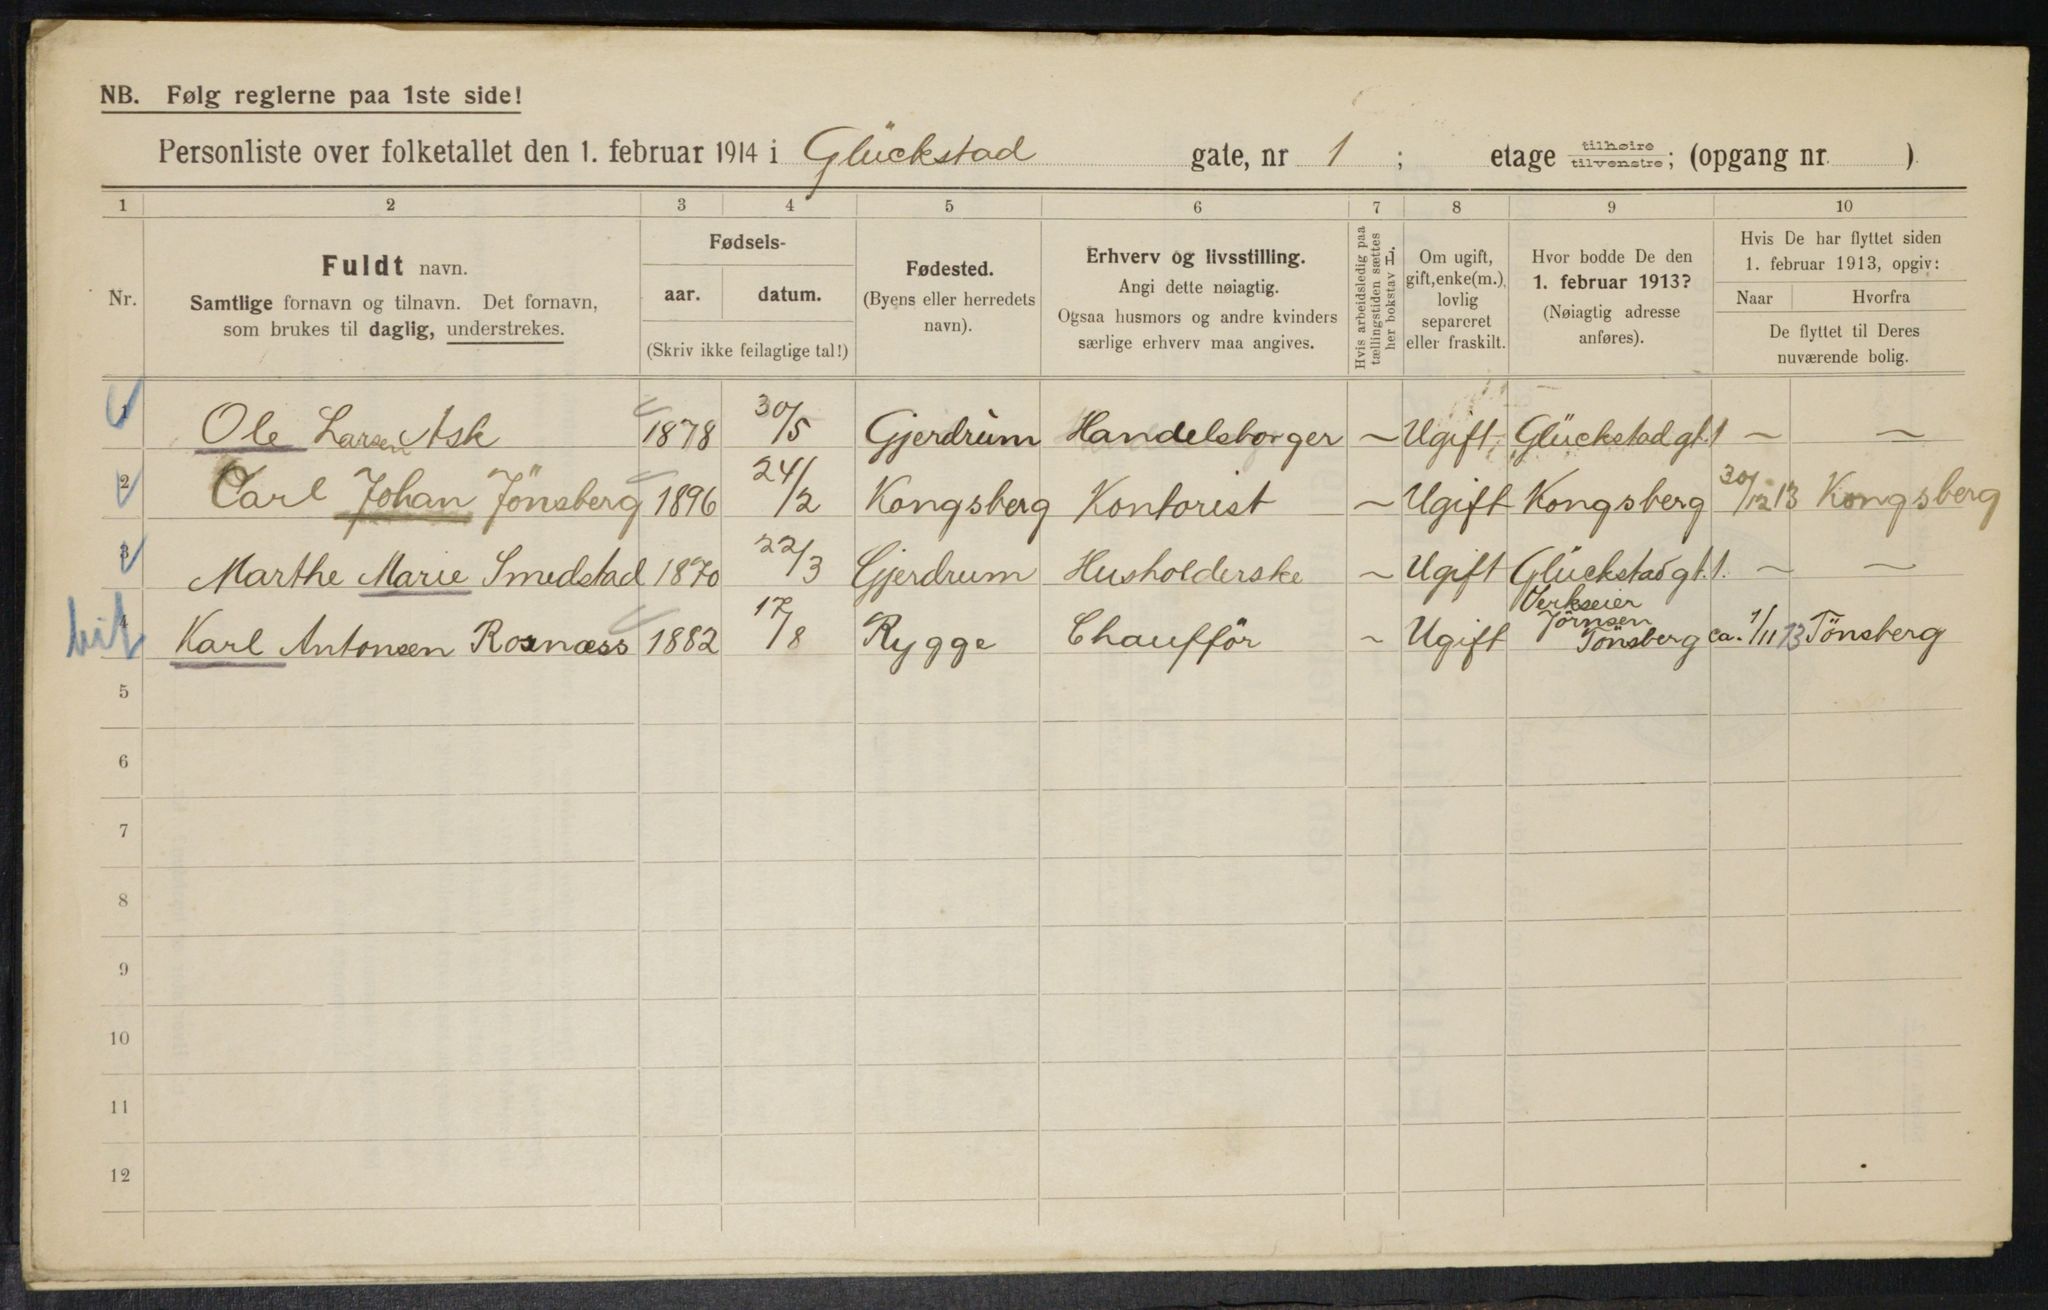 NB. Følg reglerne paa 1ste side!
Personliste over folketallet den 1. februar 1914 i Glückstad gate, nr 1 ; etage tilhøire tilvenstre; (opgang nr. )
1 2 3 4 5 6 7 8 9 10
Nr.
Fuldt navn.
Samtlige fornavn og tilnavn. Det fornavn,
som brukes til daglig, understrekes.
Fødsels-
aar. datum.
(Skriv ikke feilagtige tal!)
Fødested.
(Byens eller herredets
navn).
Erhverv og livsstilling.
Angi dette nøiagtig.
Ogsaa husmors og andre kvinders
særlige erhverv maa angives.
Hvis arbeidsledig paa
tællingstiden sættes
her bokstav L.
Om ugift,
gift, enke(m.),
lovlig
separeret
eller fraskilt.
Hvor bodde De den
1. februar 1913?
(Nøiagtig adresse
anføres).
Hvis De har flyttet siden
1. februar 1913, opgiv:
Naar Hvorfra
De flyttet til Deres
nuværende bolig.
1 Ole Larsen Ask 1878 30/5 Gjerdrum Handelsborger ~ Ugift Glückstadgt. 1 ~ ~
2 Carl Johan Jönsberg 1896 24/2 Kongsberg Kontorist ~ Ugift Kongsberg 30/12 13 Kongsberg
3 Marthe Marie Smedstad 1870 22/3 Gjerdrum Husholderske ~ Ugift Glückstadgt. 1. ~ ~
4 Karl Antonsen Rosnæss 1882 17/8 Rygge Chaufför ~ Ugift Verkseier
Jörnsen
Tönsberg ca. 1/11 13 Tönsberg
5
6
7
8
9
10
11
12